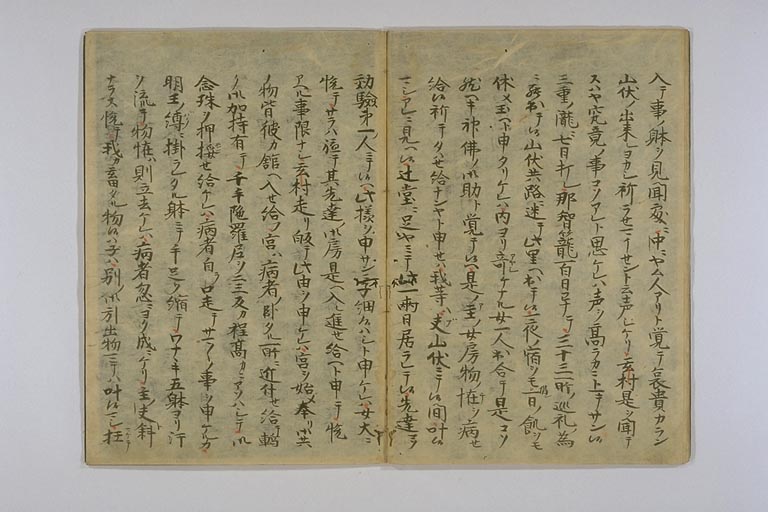 入テ事ノ躰ヲ見聞處ニ中ニヤム人アリト覚テ哀貴カラン
山伏ノ出来レヨカシ祈ラセマイーセント云声シケリ玄村是ヲ聞テ
スハヤ究竟ノ事コソアレト思ケレハ声ヲ高ラカニ上テ
三重ノ瀧ニ七日打レ那智ニ籠百日子テ三十三所ノ巡礼為
ニ罷出テ候山伏共路ニ迷テ此里ヘ出テ候一夜ノ宿ヲモ一日ノ飢ヲモ
休メ玉ヘト申タリケレハ内ヨリ奇ケナル女一人出合テ是コソ
然ヘキ神佛ノ御助ト覚テ候ヘ是ノ主ノ女房物ノ怪ヲ病セ
給候祈テタセ給テンヤト申セハ我等ハ夫山伏ニテ候間叶候
マシアレニ見ヘ候辻堂ニ足ヤミテ一両日居ラレテ候先達コソ
効驗第一人ニテ候ヘ此樣ヲ申サンニ子細候ハシト申ケレハ女大ニ
悦テサラハ其先達ノ御房是ヘ入レ進セ給ヘト申テ悦
アヘル事限ナシ玄村走リ皈テ此由ヲ申ケレハ宮ヲ始メ奉リ御共
ノ物皆彼カ舘ヘ入セ給フ宮ハ病者ノ卧タル所ニ近付セ給テ
御加持有テ千手陀羅尼ヲ二三反カ程高カニアソハレテ御
念珠ヲ押揉セ給ケレハ病者自口走テサマノ事ヲ申ケルカ
明王ノ縛ニ掛ラレタル躰ニテ手足ヲ縮テワナキ五躰ヨリ汗
ヲ流テ物怪ハ則立去ケレハ病者忽ニヨク成ニケリ主ノ夫斜
ナラス悦テ我カ畜タル物候ハネハ別ノ御引出物マテハ叶候マシ枉